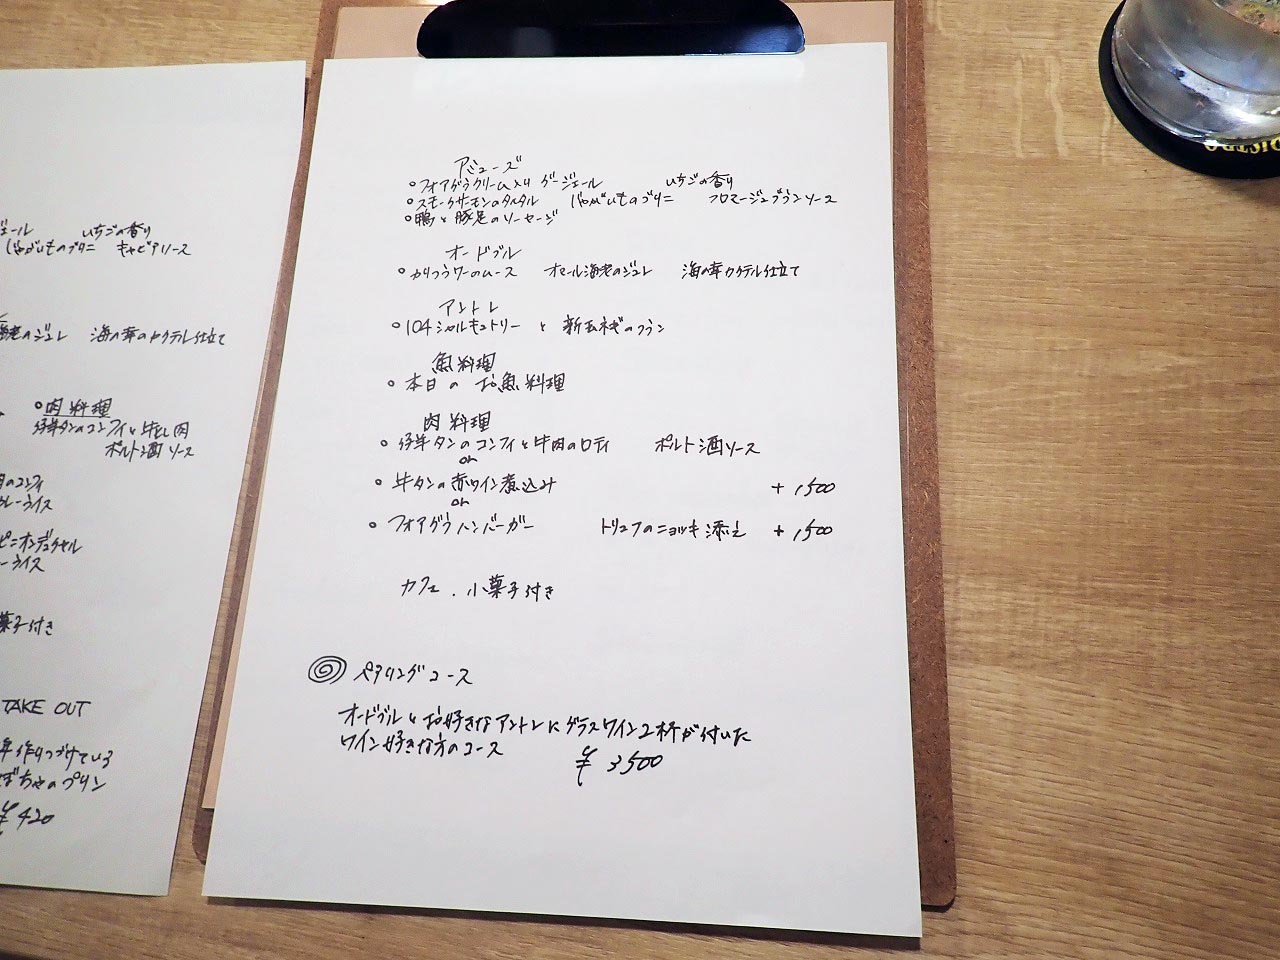 アミューズ
○フォアグラクリーム入り グージェール いちごの香り
○スモークサーモンのタルタル じゃがいものブリニ フロマージュブランソース
○鴨と豚足のソーセージ
オードブル
○カリフラワーのムース オマール海老のジュレ 海の幸カクテル仕立て
アントレ
○104シャルキュトリー と 新玉ネギのフラン
魚料理
○本日の お魚料理
肉料理
○仔牛タンのコンフィと牛肉のロティ ポルト酒ソース
or
○牛タンの赤ワイン煮込み +1500
or
○フォアグラハンバーガー トリュフのニョッキ添え +1500
カフェ.小菓子付き
ペアリングコース
オードブルとお好きなアントレにグラスワイン2杯が付いた
ワイン好きな方のコース ¥3500
ジェール いちごの香り
じゃがいものブリニ キャビアソース
海老のジュレ 海の幸のカクテル仕立て
○肉料理
仔牛タンのコンフィと牛もも肉
ポルト酒ソース
のコンフィ
カレーライス
ピニオンデュクセル
ーライス
菓子付き
TAKE OUT
年作りつづけている
ぼちゃのプリン
¥420
BISTRO